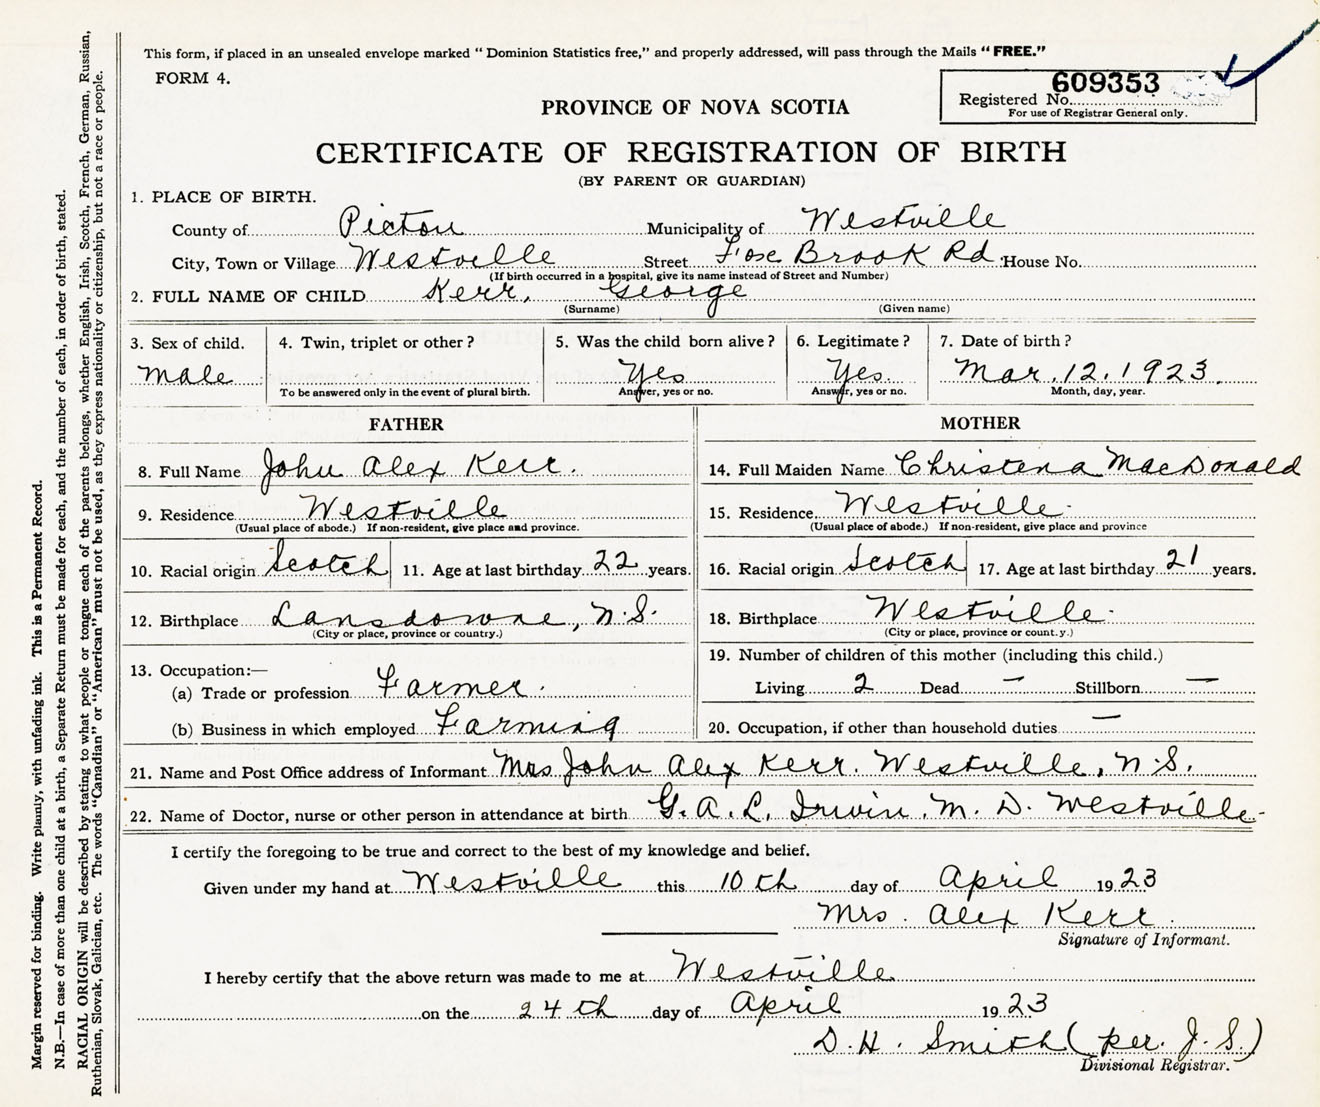 This form, if placed in an unsealed envelope marked "Dominion Statistics free," and properly addressed, will pass through the Mails "FREE."
FORM 4.
609353
Registered No.
For use of Registrar General only.
PROVINCE OF NOVA SCOTIA
CERTIFICATE OF REGISTRATION OF BIRTH
(BY PARENT OR GUARDIAN)
1. PLACE OF BIRTH.
County of Pictou Municipality of Westville
City, Town or Village Westville Street Fox Brook Rd. House No.
(If birth occurred in a hospital, give its name instead of Street and Number)
2. FULL NAME OF CHILD Kerr, George
(Surname) (Given name)
3. Sex of child. 4. Twin, triplet or other? 5. Was the child born alive? 6. Legitimate? 7. Date of birth?
Male Yes Yes. Mar. 12. 1923.
To be answered only in the event of plural birth. Answer, yes or no. Answer, yes or no. Month, day, year.
FATHER MOTHER
8. Full Name John Alex Kerr. 14. Full Maiden Name Christena MacDonald
9. Residence Westville 15. Residence Westville.
(Usual place of abode.) If non-resident, give place and province. (Usual place of abode.) If non-resident, give place and province
10. Racial origin Scotch 11. Age at last birthday 22 years. 16. Racial origin Scotch 17. Age at last birthday 21 years.
12. Birthplace Lansdowne, N.S. 18. Birthplace Westville.
(City or place, province or country.) (City or place, province or count.y.)
19. Number of children of this mother (including this child.)
13. Occupation:—
(a) Trade or profession Farmer. Living 2 Dead — Stillborn —
(b) Business in which employed Farming 20. Occupation, if other than household duties —
21. Name and Post Office address of Informant Mrs John Alex Kerr. Westville, N.S.
22. Name of Doctor, nurse or other person in attendance at birth G. A. L. Irwin. M. D. Westville.
I certify the foregoing to be true and correct to the best of my knowledge and belief.
Given under my hand at Westville this 10th day of April 1923
Mrs. Alex Kerr.
Signature of Informant.
I hereby certify that the above return was made to me at Westville
on the 24th day of April 1923
D. H. Smith (per. J. S.)
Divisional Registrar.
Margin reserved for binding. Write plainly, with unfading ink. This is a Permanent Record.
N.B.—In case of more than one child at a birth, a Separate Return must be made for each, and the number of each, in order of birth, stated.
RACIAL ORIGIN will be described by stating to what people or tongue each of the parents belongs, whether English, Irish, Scotch, French, German, Russian,
Ruthenian, Slovak, Galician, etc. The words "Canadian" or "American" must not be used, as they express nationality or citizenship, but not a race or people.